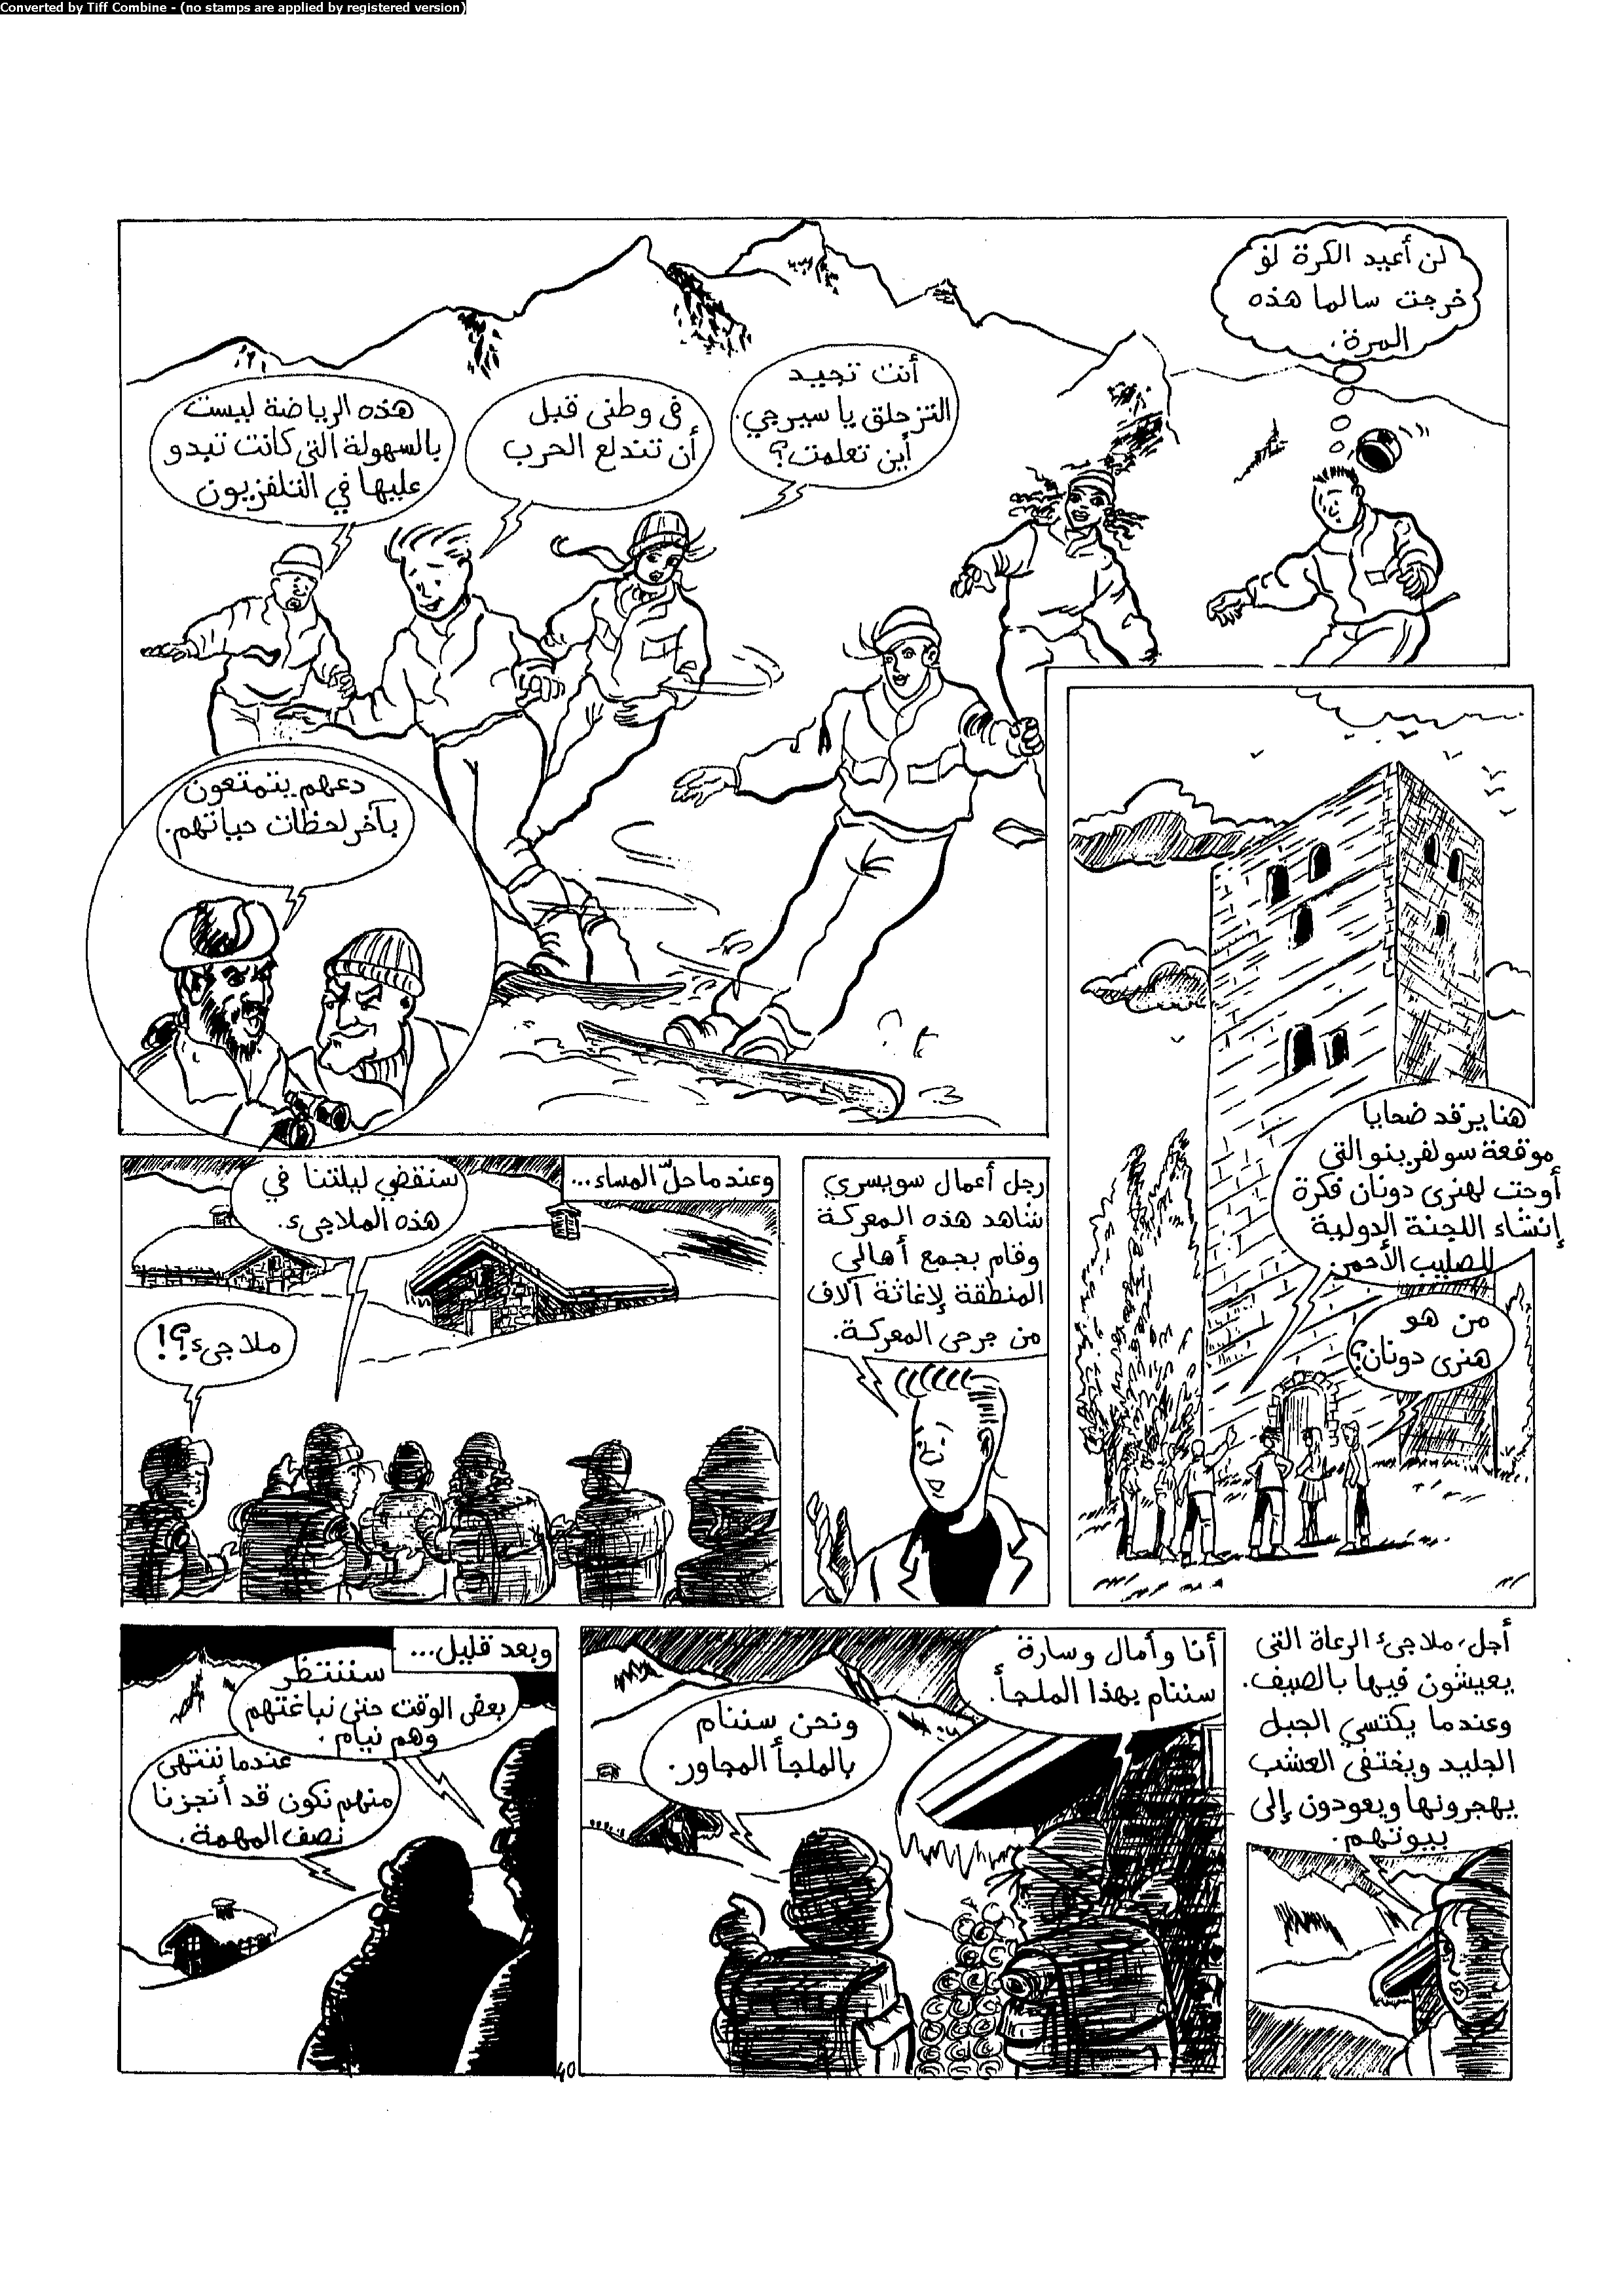 Converted by Tiff Combine - (no stamps are applied by registered version)
لن أعيد الكرة لو
خرجت سالما هذه
المرة.
أنت تجيد
التزحلق يا سيرجي.
أين تعلمت؟
فى وطنى قبل
أن تندلع الحرب
هذه الرياضة ليست
بالسهولة التى كانت تبدو
عليها في التلفزيون
دعهم يتمتعون
بآخر لحظات حياتهم.
هنا يرقد ضحايا
موقعة سولفرينو التي
أوحت لهنرى دونان فكرة
إنشاء اللجنة الدولية
للصليب الأحمر.
من هو
هنرى دونان؟
رجل أعمال سويسري
شاهد هذه المعركة
وقام بجمع أهالي
المنطقة لإغاثة آلاف
من جرحى المعركة.
وعندما حلّ المساء...
سنقضي ليلتنا في
هذه الملاجىء.
ملاجىء؟!
أجل، ملاجىء الرعاة التى
يعيشون فيها بالصيف.
وعندما يكتسي الجبل
الجليد ويختفى العشب
يهجرونها ويعودون إلى
بيوتهم.
أنا وأمال وسارة
سننام بهذا الملجأ.
ونحن سننام
بالملجأ المجاور.
وبعد قليل...
سننتظر
بعض الوقت حتى نباغتهم
وهم نيام.
عندما ننتهى
منهم نكون قد أنجزنا
نصف المهمة.
40